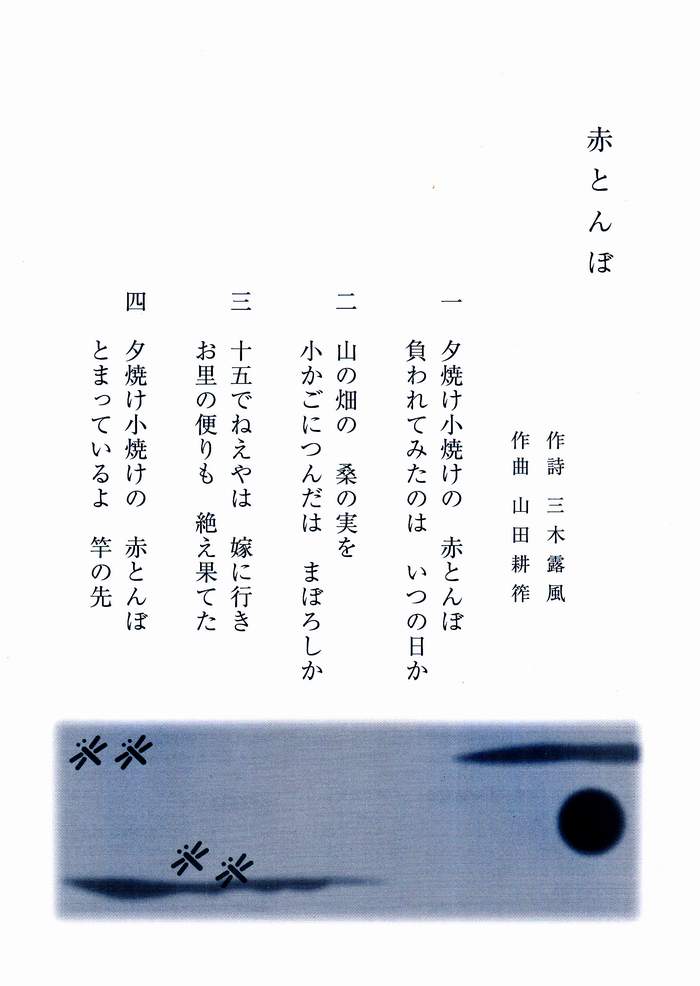 赤とんぼ
作詩 三木露風
作曲 山田耕筰
一 夕焼け小焼けの 赤とんぼ
負われてみたのは いつの日か
二 山の畑の 桑の実を
小かごにつんだは まぼろしか
三 十五でねえやは 嫁に行き
お里の便りも 絶え果てた
四 夕焼け小焼けの 赤とんぼ
とまっているよ 竿の先